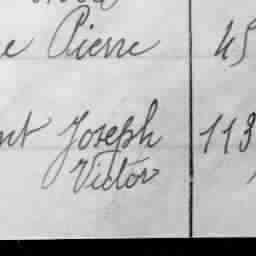 e Pierre 45
nt Joseph 113
Victor